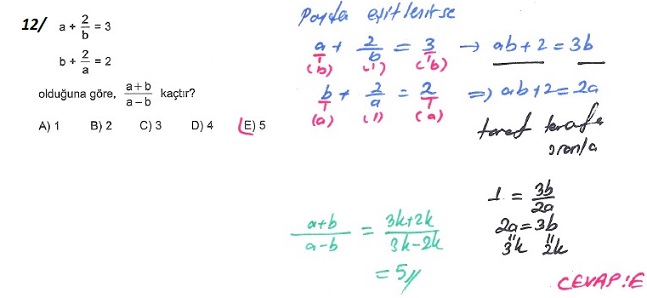 12/ a + 2/b = 3
b + 2/a = 2
olduğuna göre, (a+b)/(a−b) kaçtır?
A) 1 B) 2 C) 3 D) 4 E) 5
Payda eşitlenirse
a/1 + 2/b = 3/1 → ab+2 = 3b
(b) (1) (b)
b/1 + 2/a = 2/1 ⇒ ab+2 = 2a
(a) (1) (a)
taraf tarafa
oranla
1 = 3b/2a
2a = 3b
3k 2k
(a+b)/(a-b) = (3k+2k)/(3k-2k)
= 5//
CEVAP:E